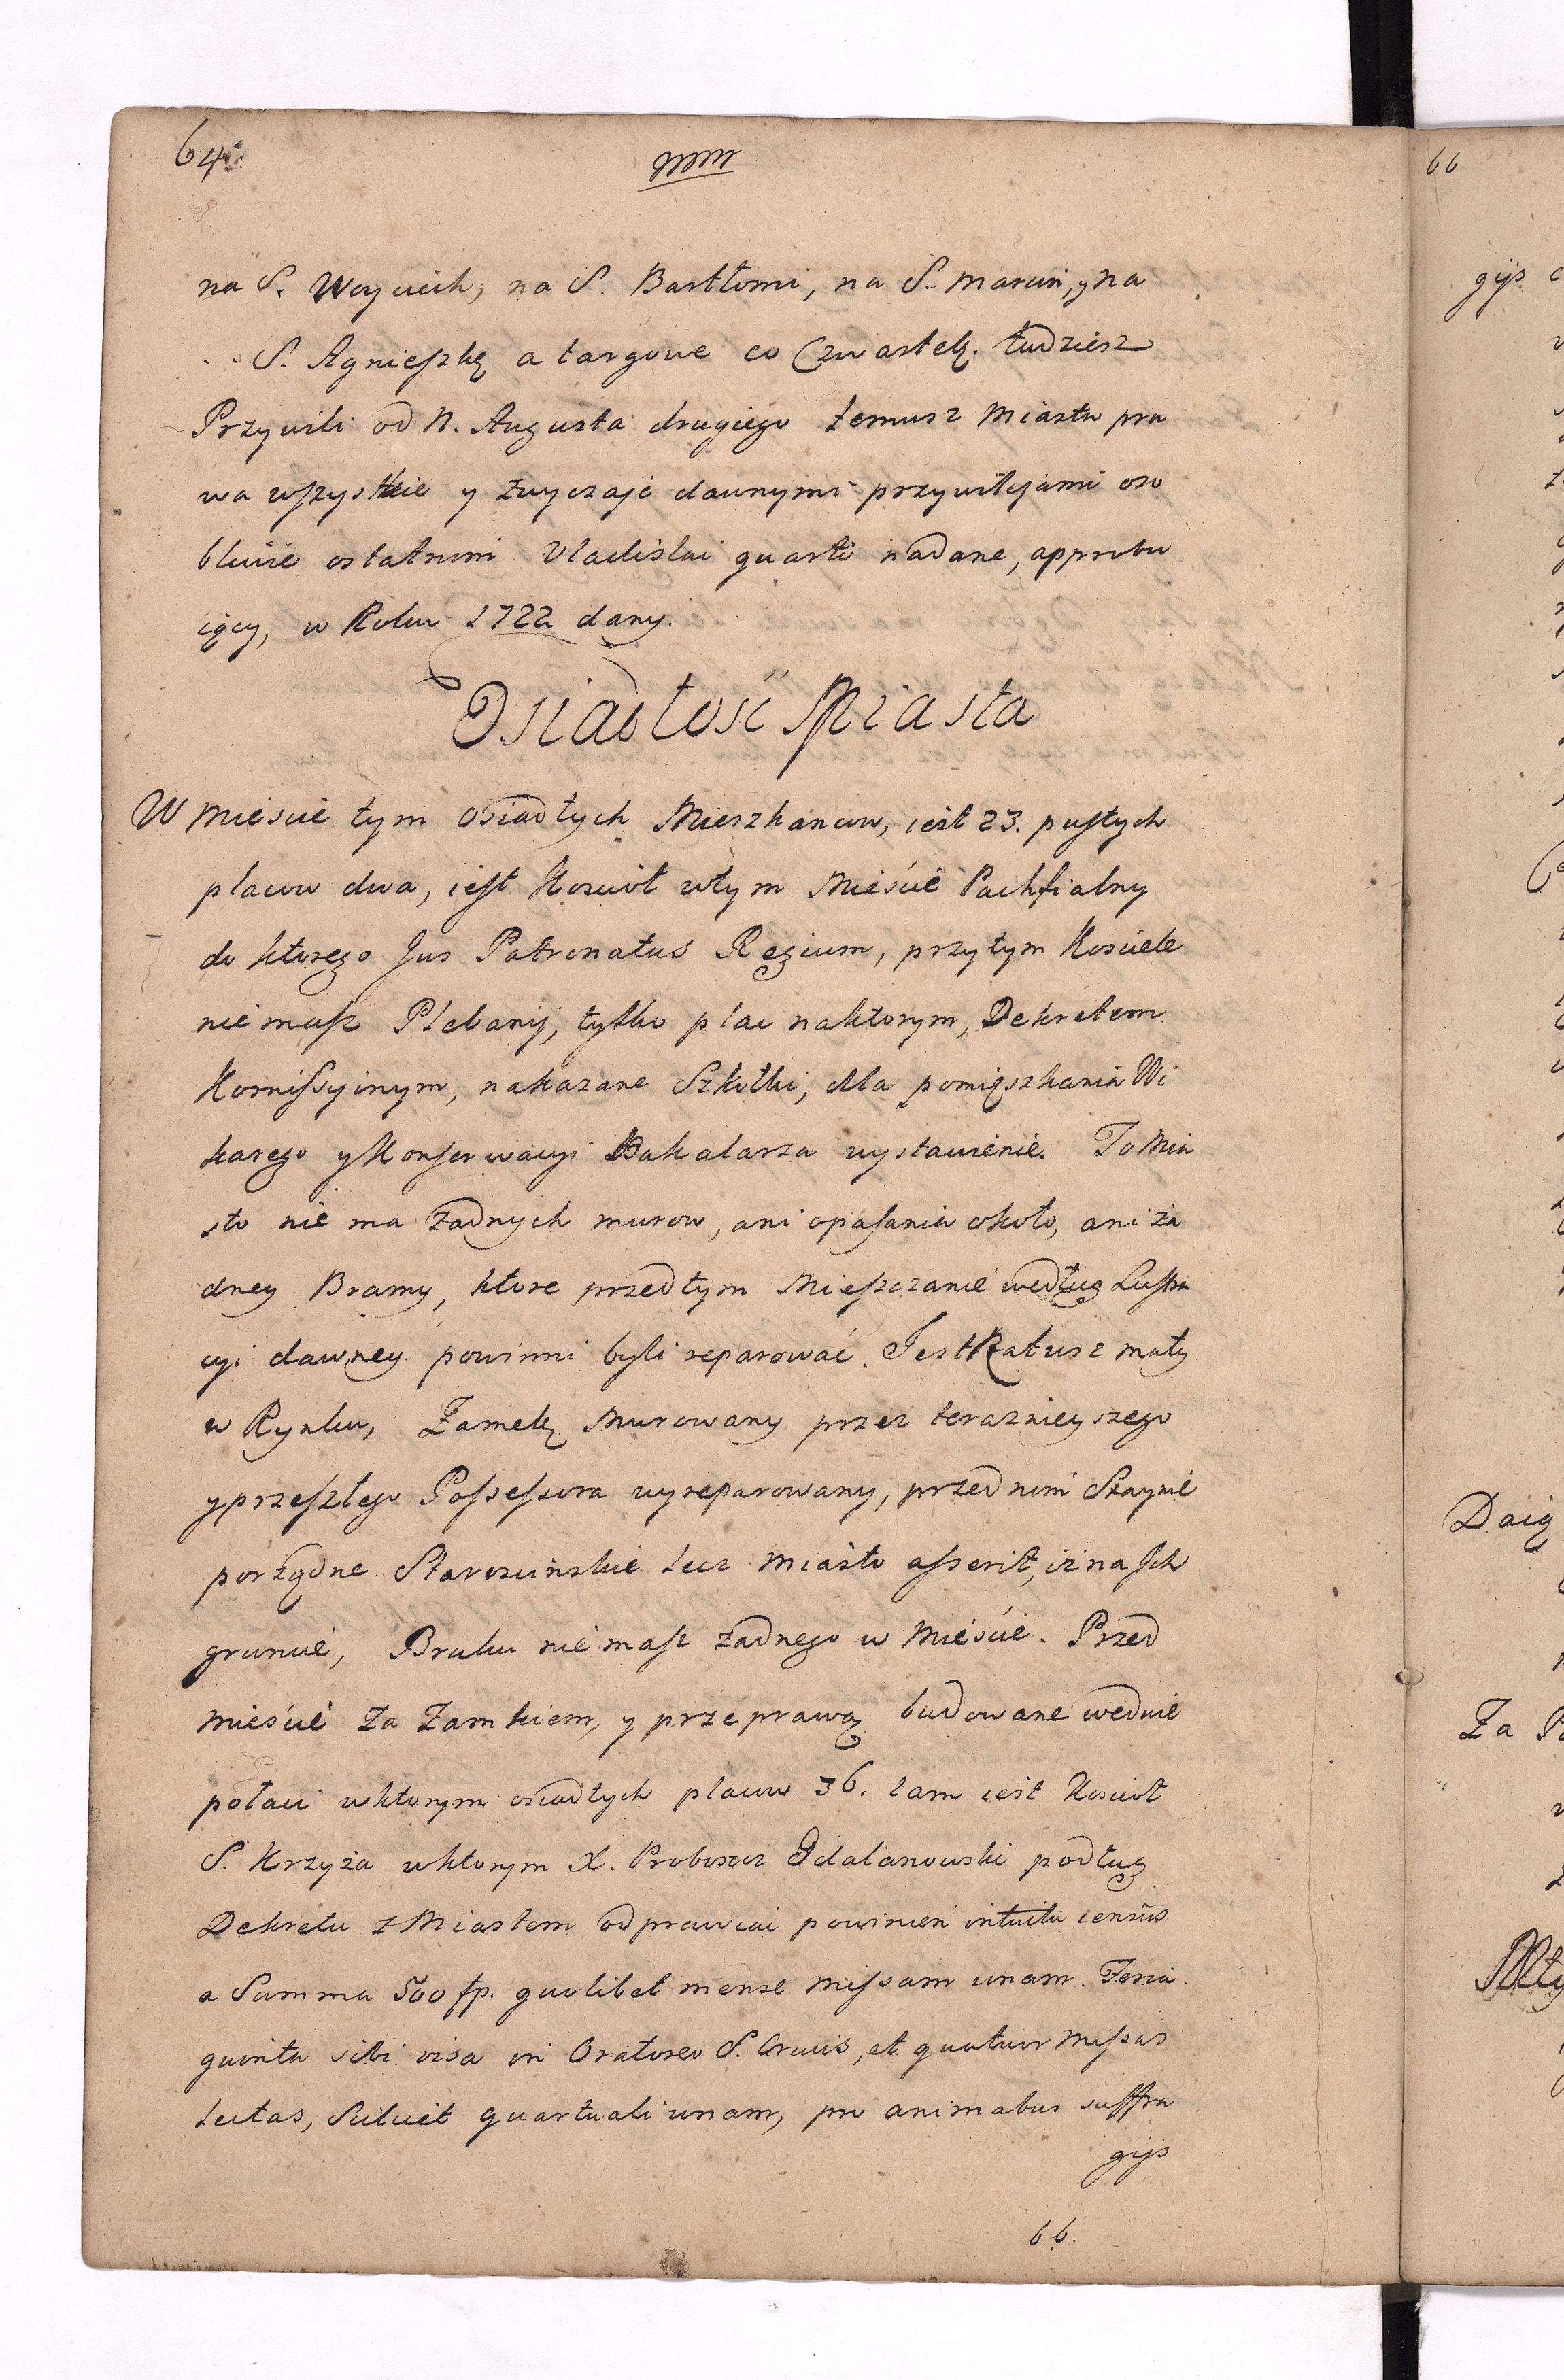 64
na S. Woyciech, na S. Bartłomi, na S. Marcin, y na
S. Agnieszkę a targowe co Czwartek. tudziesz
Przywili od N. Augusta drugiego temusz Miastu pra
wa wszystkie y zwyczaje dawnymi przywilejami oso
bliwie ostatnim Vladislai quarti nadane, approbu
iący, w Roku 1722 dany.
Osiadłość Miasta
W Mieście tym osiadłych Mieszkancow, iest 23. pustych
placow dwa, iest Kosciół wtym Mieście Parchfialny
do ktorego Jus Patronatus Regium, przytym Kosciele
niemasz Plebanij, tylko plac naktorym, Dekretem
Komissyinym, nakazane Szkołki, dla pomięszkania Wi
karego y Konserwacyi Bakalarza wystawienie. To Mia
sto nie ma żadnych murow, ani opasania około, ani ża
dney Bramy, ktore przedtym Mieszczanie według Lustra
cyi dawney powinni byli reparować. Jest Ratusz mały
w Rynku, Zamek Murowany przez teraznieyszego
y przeszłego Possessora wyreparowany, przed nim Staynie
porządne Starościnskie lecz Miasto asserit, iż na Ich
gruncie, Bruku nie masz żadnego w Mieście. Przed
mieście za Zamkiem, y przeprawą budowane wedwie
połaci wktorym osiadłych placow 36. tam iest Kosciół
S. Krzyża wktorym X. Proboszcz Odalanowski podług
Dekretu z Miastem odprawiai powinien intuitu census
a Summa 500 fp. quolibet mense missam unam. Feria
quinta sibi visa in Oratorio S. Crucis, et quatuor Missas
lectas, Scilicet quartuali unam, pro animabus suffra
gijs
66.
66
gijs
Daią
Za